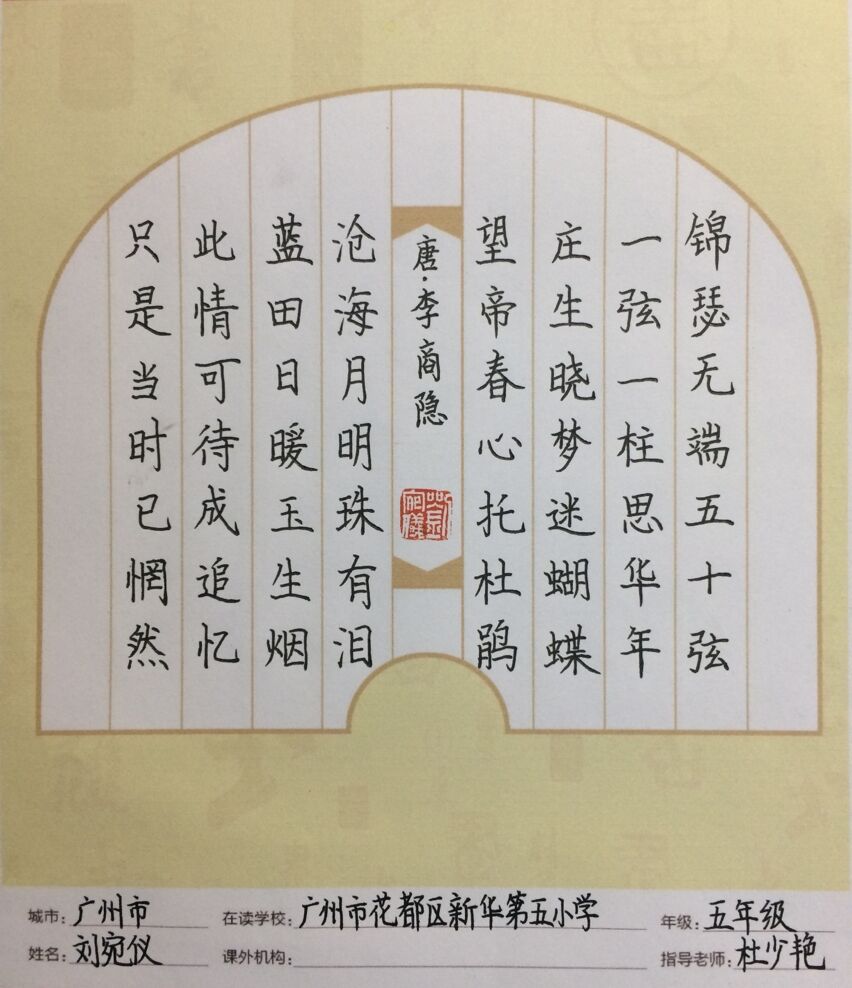 锦瑟无端五十弦
一弦一柱思华年
庄生晓梦迷蝴蝶
望帝春心托杜鹃
唐·李商隐
沧海月明珠有泪
蓝田日暖玉生烟
此情可待成追忆
只是当时已惘然
城市：广州市 在读学校：广州市花都区新华第五小学 年级：五年级
姓名：刘宛仪 课外机构： 指导老师：杜少艳